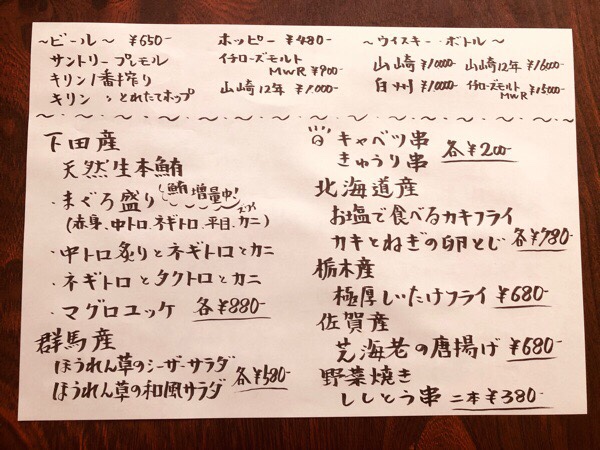 ～ビール～ ¥650-
サントリープレモル
キリン1番搾り
キリン とれたてホップ
ホッピー ¥480-
イチローズモルト
MWR ¥900-
山崎12年 ¥1,000-
～ウイスキー・ボトル～
山崎 ¥10000- 山崎12年 ¥16000-
白州 ¥10000- イチローズモルト
MWR ¥15000-
下田産
天然生本鮪
・まぐろ盛り 鮪増量中!
(赤身、中トロ、ネギトロ、平目、カニ)
・中トロ炙りとネギトロとカニ
・ネギトロとタクトロとカニ
・マグロユッケ 各¥880-
群馬産
ほうれん草のシーザーサラダ
ほうれん草の和風サラダ 各¥580-
キャベツ串
きゅうり串 各¥200-
北海道産
お塩で食べるカキフライ
カキとねぎの卵とじ 各¥780-
栃木産
極厚しいたけフライ ¥680-
佐賀産
芝海老の唐揚げ ¥680-
野菜焼き
ししとう串 二本¥380-